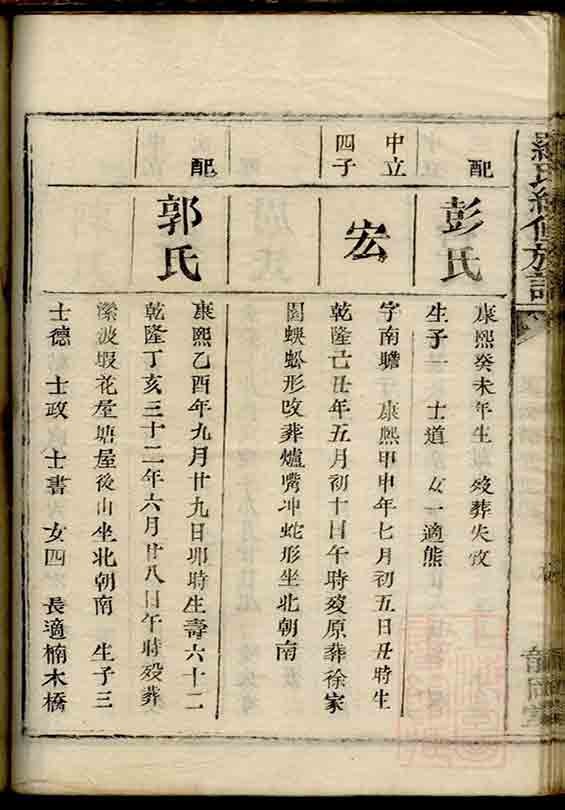 羅氏續修族譜
配
彭氏
康熙癸未年生 歿葬失攷
生子一 士道 女一適熊
中立
四子
宏
字南贍 康熙甲申年七月初五日丑時生
乾隆己丑年五月初十日午時歿原葬徐家
園蜈蚣形改葬爐嘴冲蛇形坐北朝南
配
郭氏
康熙乙酉年九月廿九日卯時生壽六十二
乾隆丁亥三十二年六月廿八日午時歿葬
潆波塅花屋塘屋後山坐北朝南 生子三
士德 士政 士書 女四 長適楠木橋